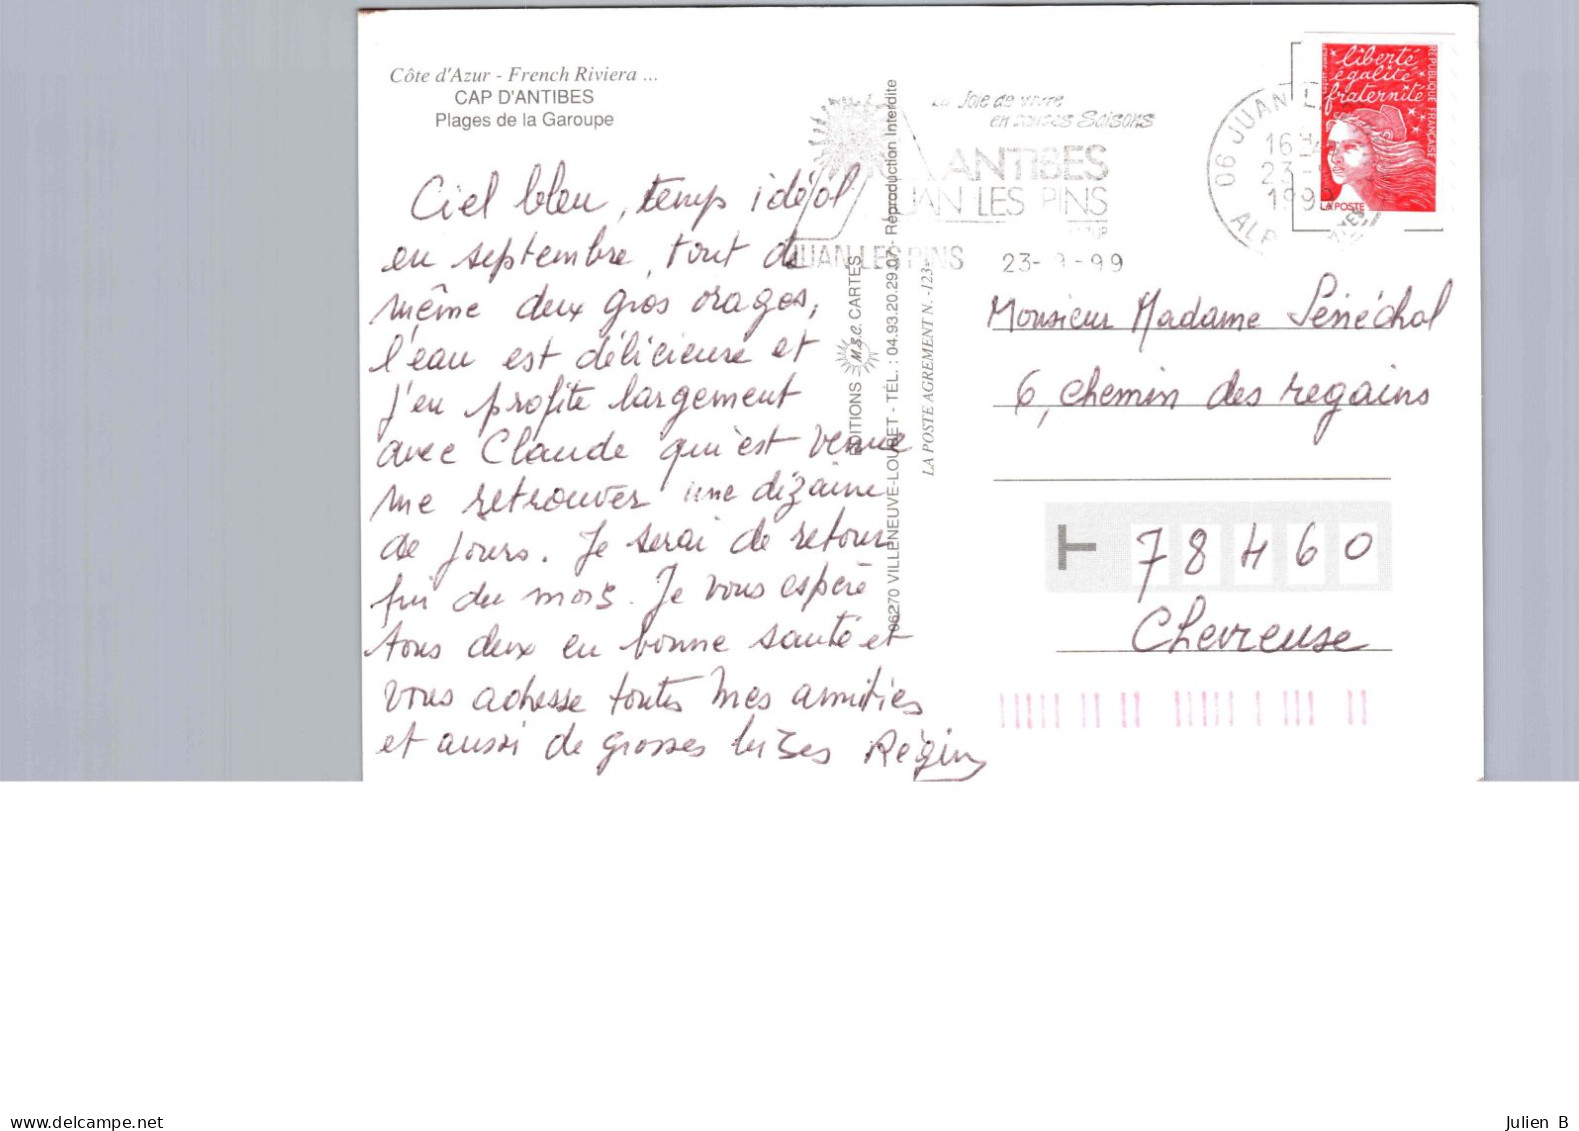 Côte d'Azur - French Riviera ...
CAP D'ANTIBES
Plages de la Garoupe
Ciel bleu, temps idéal
en septembre, tout de
même deux gros orages,
l'eau est délicieuse et
j'en profite largement
avec Claude qui est venue
me retrouver une dizaine
de jours. Je serai de retour
fin du mois. Je vous espère
tous deux en bonne santé et
vous adresse toutes mes amitiés
et aussi de grosses bises Régine
EDITIONS M.S.C. CARTES
06270 VILLENEUVE-LOUBET - TÉL. : 04.93.20.29.07 - Reproduction Interdite
LA POSTE AGREMENT N. -123-
La Joie de vivre
en toutes Saisons
ANTIBES
JUAN LES PINS
JUAN-LES-PINS 23-9-99
06 JUAN
16
23-
199
ALP
liberté
égalité
fraternité
RÉPUBLIQUE FRANÇAISE
LA POSTE
Monsieur Madame Sénéchal
6, chemin des regains
78460
Chevreuse
www.delcampe.net
Julien B